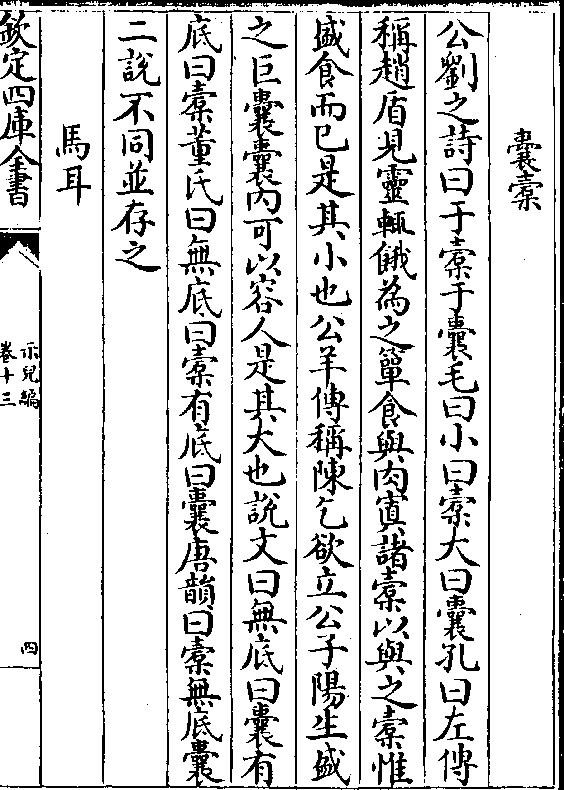 囊橐
公劉之詩曰于橐于囊毛曰小曰橐大曰囊孔曰左傳
稱趙盾見靈輒餓為之簞食與肉寘諸橐以與之橐惟
盛食而已是其小也公羊傳稱陳乞欲立公子陽生盛
之巨囊囊内可以容人是其大也說文曰無底曰囊有
底曰橐董氏曰無底曰橐有底曰囊唐韻曰橐無底囊
二說不同並存之
馬耳
欽定四庫全書
示兒編
卷十三
四